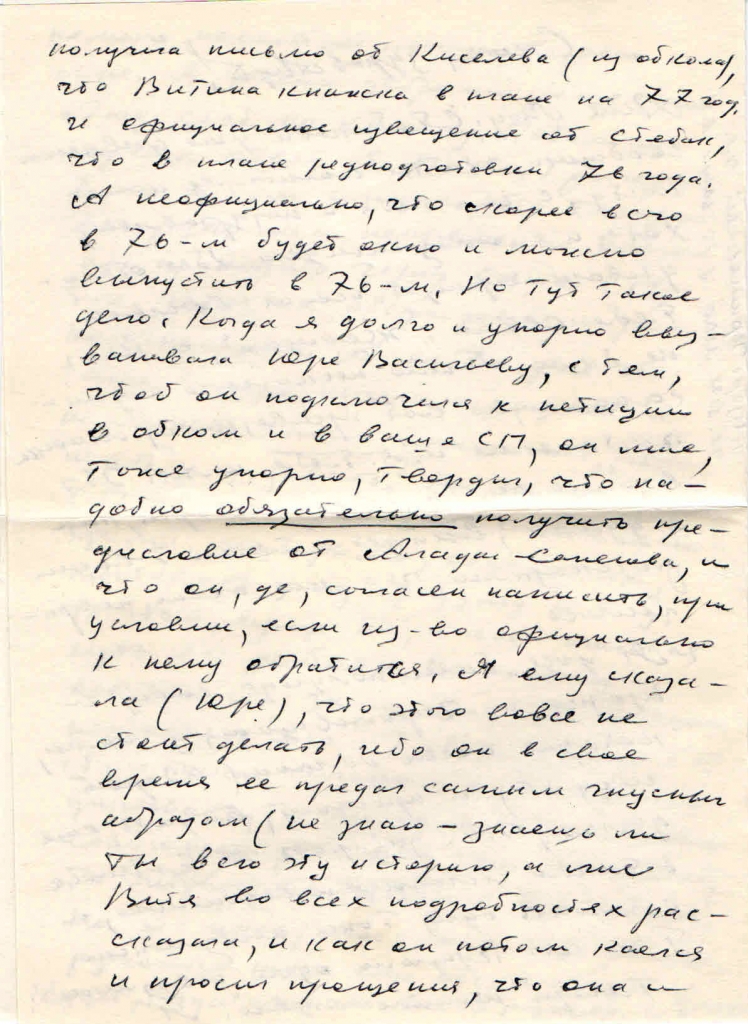 получила письмо от Киселева (из обкома),
что Витина книжка в плане на 77 год,
и официальное извещение от
что в плане редподготовки 76 года.
А неофициально, что скорее всего
в 76-м будет окно и можно
выпустить в 76-м. Но тут такое
дело. Когда я долго и упорно выз-
ванивала Юре Васильеву, с тем,
чтоб он подключился к петиции
в обком и в ваше СП, он мне,
тоже упорно, твердил, что на-
добно обязательно получить пре-
дисловие от и
что он, де, согласен написать, при
условии, если из-во официально
к нему обратится. Я ему сказа-
ла (Юре), что этого вовсе не
стоит делать, ибо он в свое
время ее предал самым гнусным
образом (не знаю – знаешь ли
ты всю эту историю, а мне
Витя во всех подробностях рас-
сказала, и как он потом каялся
и просил прощения, что она и